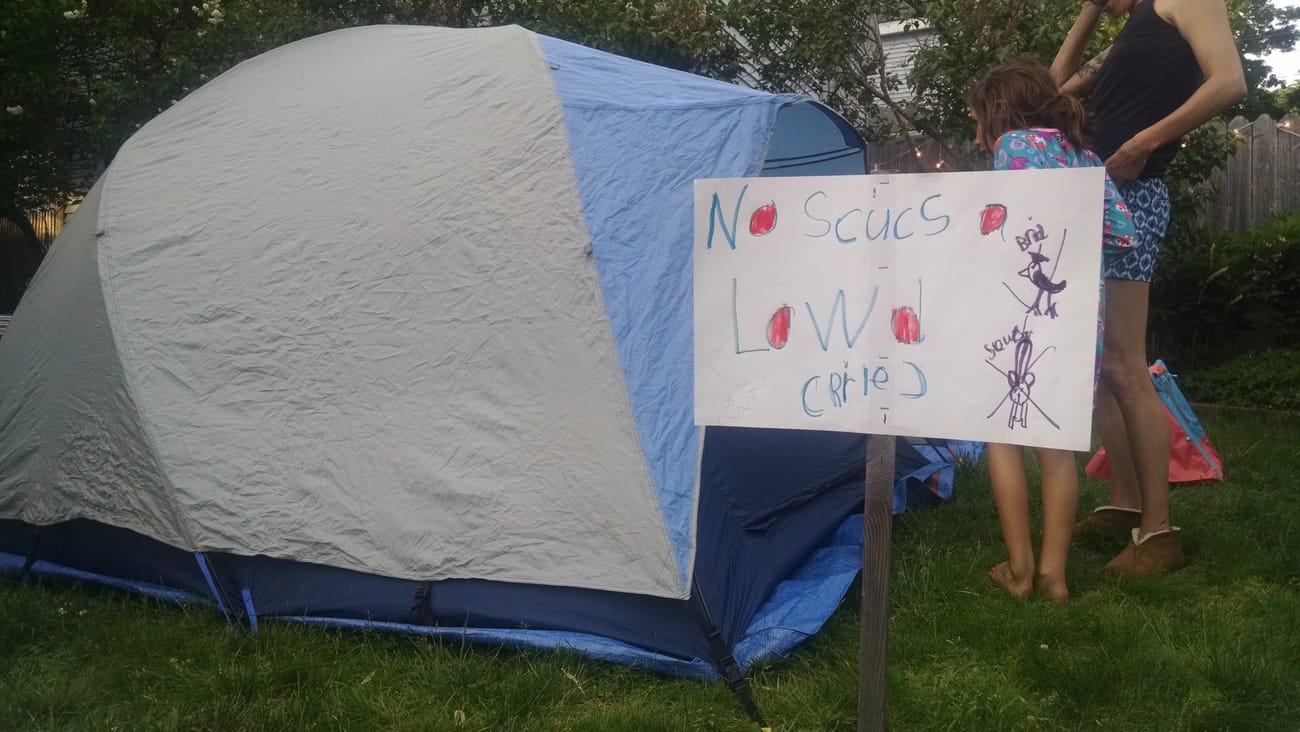 No Scucs a
Lowd
(Brie)
Brid
scuc